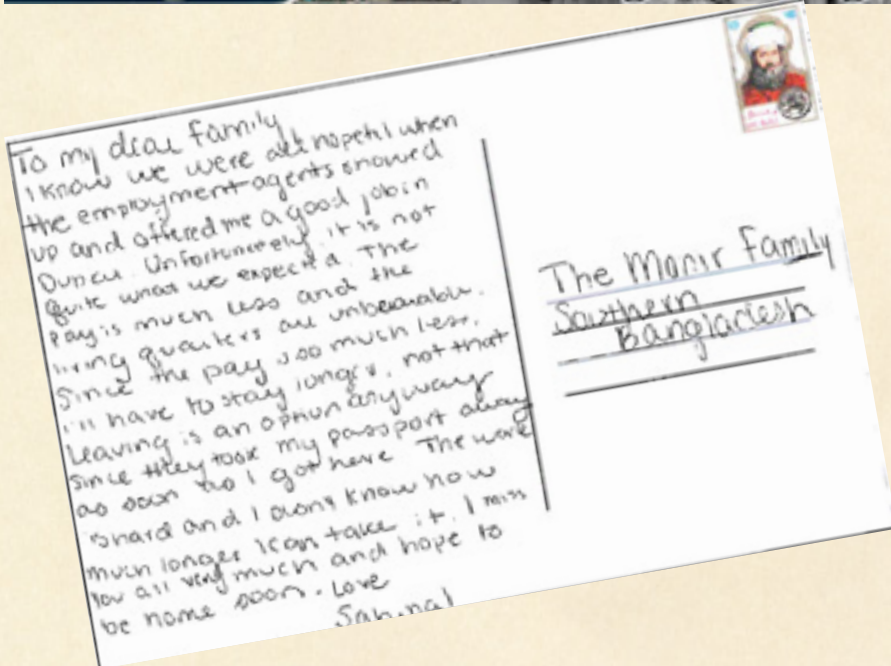 To my dear family
I know we were all hopeful when
the employment agents showed
up and offered me a good job in
Unfortunately it is not
quite what we expected. The
pay is much less and the
living quarters are unbearable.
Since the pay is so much less,
I'll have to stay longer, not that
leaving is an option anyways
since they took my passport away
as soon as I got here The work
is hard and I don't know how
much longer I can take it. I miss
You all very much and hope to
be home soon. Love
The Monir Family
Southern
Bangladesh